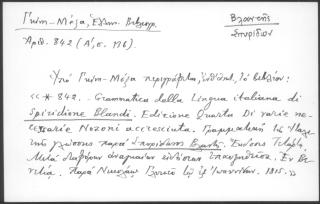 Γκίνη - Μέξα, Ἑλλην. Βιβλιογρ.
Ἀριθ. 842 (Α', σ. 136)
Βλαντῆς
Σπυρίδων
Ὑπὸ Γκίνη - Μέξα περιγράφεται, τὸ βιβλίον:
«* 842. Grammatica della Lingua italiana di
Spiridione Blandi. Edizione Quarta Di varie ne-
cessarie Nozioni accresciuta. Γραμματικὴ τῆς Ἰταλικῆς
γλώσσης παρὰ Σπυρίδωνος Βλαντῆ. Ἔκδοσις Τετάρτη,
Μετὰ διαφόρων ἀναγκαίων εἰδήσεων Ἐν Βε-
νετίᾳ. Παρὰ Νικολάῳ Γλυκεῖ τῷ ἐξ Ἰωαννίνων. 1815.»